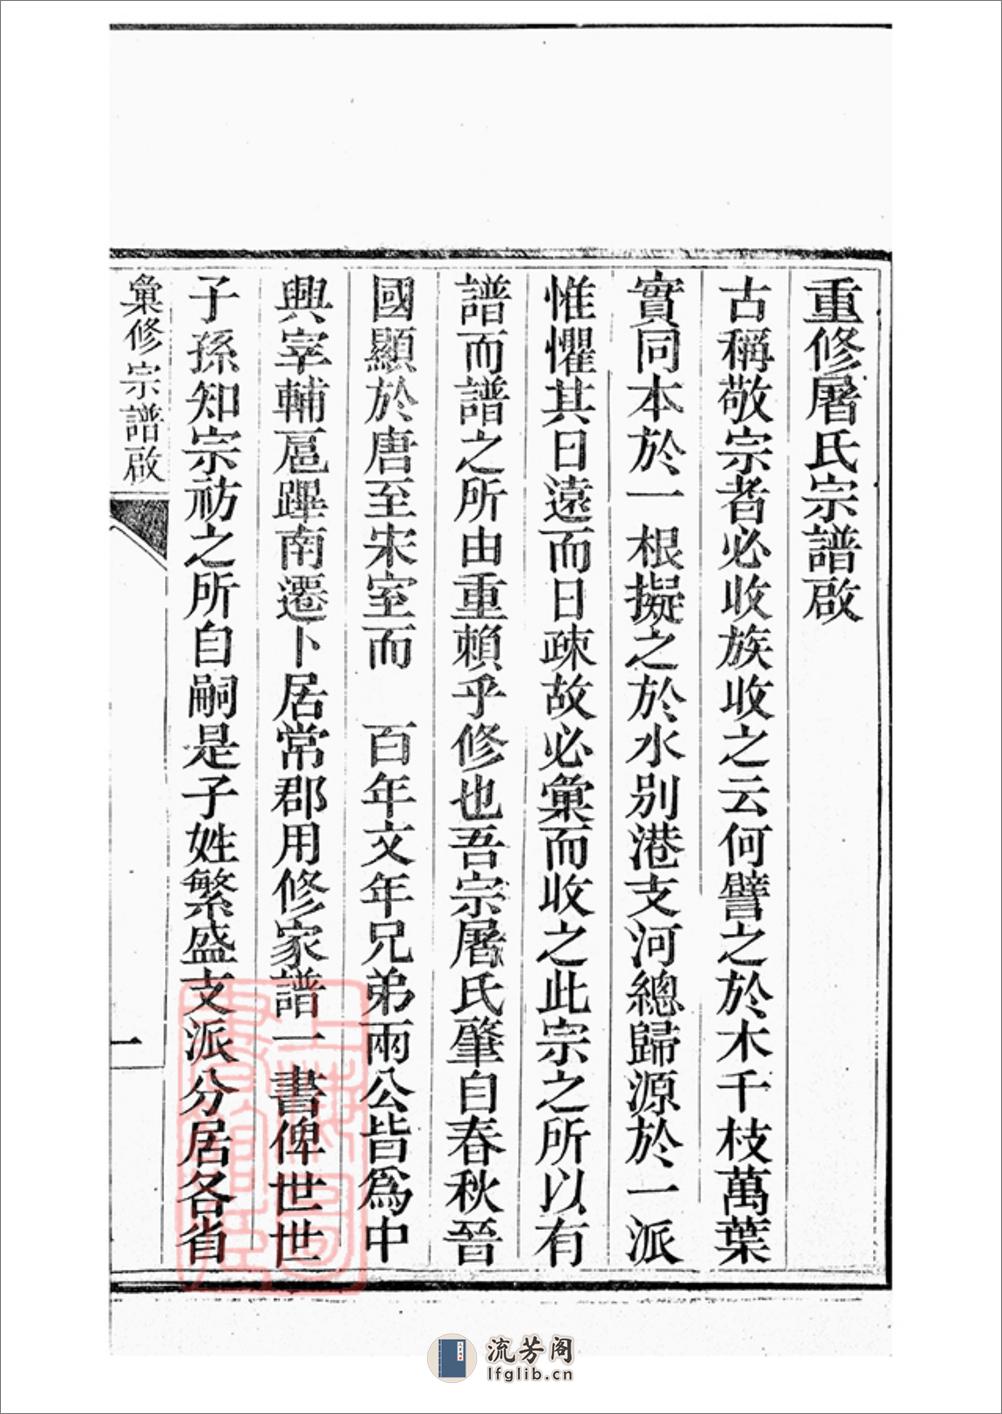 重修屠氏宗譜啟
古稱敬宗者必收族收之云何譬之於木千枝萬葉
實同本於一根擬之於水別港支河總歸源於一派
惟懼其日遠而日疎故必彙而收之此宗之所以有
譜而譜之所由重賴乎修也吾宗屠氏肇自春秋晉
國顯於唐至宋室而　百年文年兄弟兩公皆爲中
興宰輔扈蹕南遷卜居常郡用修家譜一書俾世世
子孫知宗祊之所自嗣是子姓繁盛支派分居各省
彙修宗譜啟
一
上海圖書館藏
流芳阁
lfglib.cn